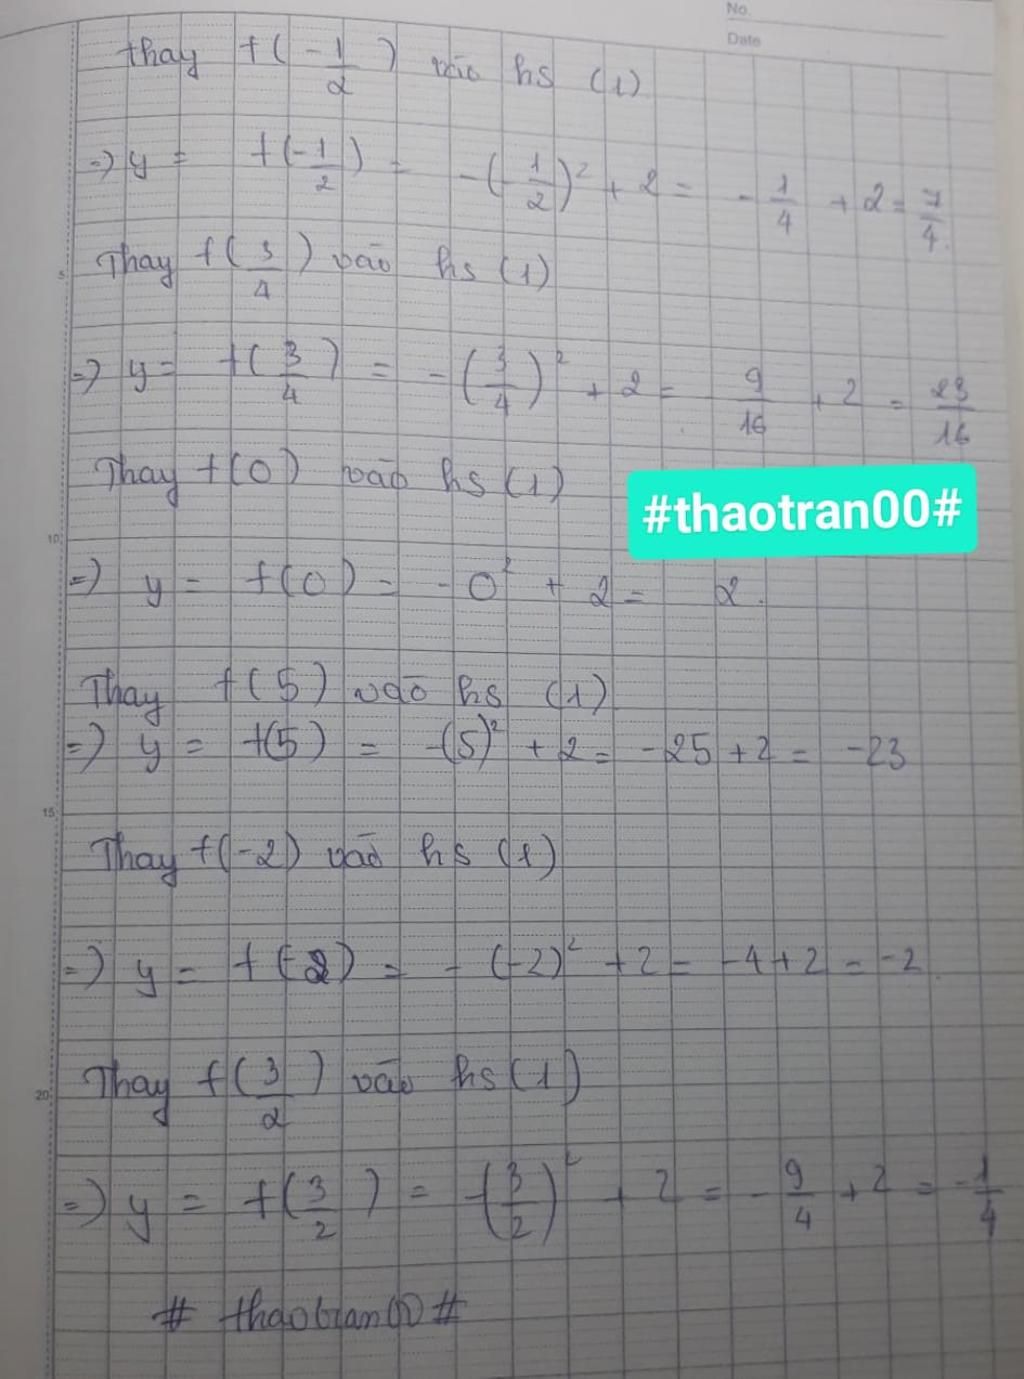 No.
Date
thay f(-1/2) vào hs (1)
=) y = f(-1/2) = -(-1/2)² + 2 = -1/4 + 2 = 7/4.
Thay f(3/4) vào hs (1)
5
=) y = f(3/4) = -(3/4)² + 2 = 9/16 + 2 = 23/16
Thay f(0) vào hs (1)
#thaotran00#
10
=) y = f(0) = -0² + 2 = 2.
Thay f(5) vào hs (1)
=) y = f(5) = -(5)² + 2 = -25 + 2 = -23
15
Thay f(-2) vào hs (1)
=) y = f(-2) = -(-2)² + 2 = -4 + 2 = -2
Thay f(3/2) vào hs (1)
20
=) y = f(3/2) = -(3/2)² + 2 = -9/4 + 2 = -1/4
# thaotran00 #